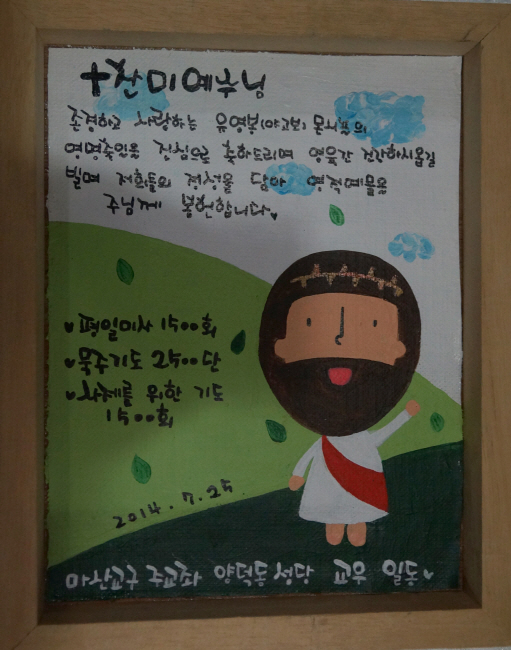 +찬미예수님
존경하고 사랑하는 유영봉(야고보) 몬시뇰의
영명축일을 진심으로 축하드리며 영육간 건강하시옵길
빌며 저희들의 정성을 담아 영적예물을
주님께 봉헌합니다♥
♥평일미사 1500회
♥묵주기도 2500단
♥사제를 위한 기도
1500회
2014.7.25
마산교구 주교좌 양덕동성당 교우 일동♥